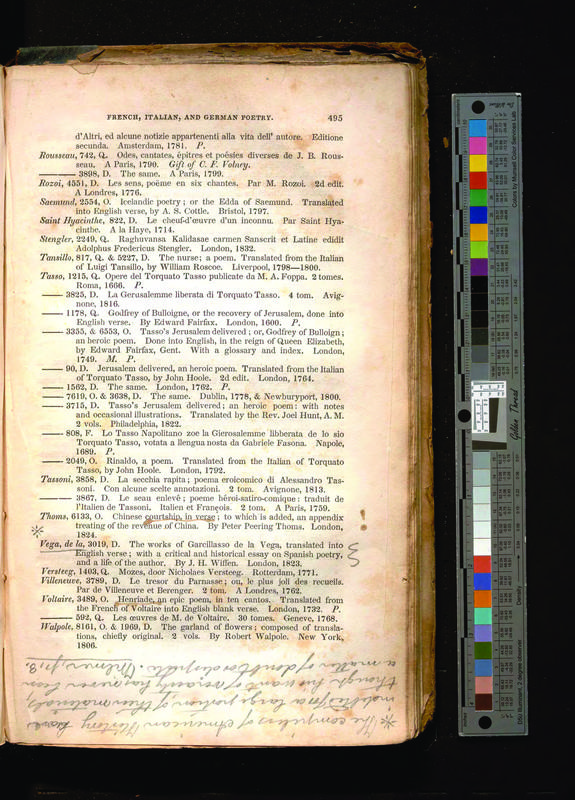 FRENCH, ITALIAN, AND GERMAN POETRY. 495
d'Altri, ed alcune notizie appartenenti alla vita dell' autore. Editione
secunda. Amsterdam, 1781. P.
Rousseau, 742, Q. Odes, cantates, épitres et poésies diverses de J. B. Rous-
seau. A Paris, 1790. Gift of C. F. Volney.
——— 3898, D. The same. A Paris, 1799.
Rozoi, 4551, D. Les sens, poëme en six chants. Par M. Rozoi. 2d edit.
A Londres, 1776.
Saemund, 2554, O. Icelandic poetry; or the Edda of Saemund. Translated
into English verse, by A. S. Cottle. Bristol, 1797.
Saint Hyacinthe, 822, D. Le cheuf-d'œuvre d'un inconnu. Par Saint Hya-
cinthe. A la Haye, 1714.
Stengler, 2249, Q. Raghuvansa Kalidasae carmen Sanscrit et Latine edidit
Adolphus Fredericus Stengler. London, 1832.
Tansillo, 817, Q. & 5227, D. The nurse; a poem. Translated from the Italian
of Luigi Tansillo, by William Roscoe. Liverpool, 1798—1800.
Tasso, 1215, Q. Opere del Torquato Tasso publicate da M. A. Foppa. 2 tomes.
Roma, 1666. P.
—— 3825, D. La Gerusalemme liberata di Torquato Tasso. 4 tom. Avig-
none, 1816.
—— 1178, Q. Godfrey of Bulloigne, or the recovery of Jerusalem, done into
English verse. By Edward Fairfax. London, 1600. P.
—— 3355, & 6553, O. Tasso's Jerusalem delivered; or, Godfrey of Bulloign;
an heroic poem. Done into English, in the reign of Queen Elizabeth,
by Edward Fairfax, Gent. With a glossary and index. London,
1749. M. P.
—— 90, D. Jerusalem delivered, an heroic poem. Translated from the Italian
of Torquato Tasso, by John Hoole. 2d edit. London, 1764.
—— 1562, D. The same. London, 1762. P.
—— 7619, O. & 3638, D. The same. Dublin, 1778, & Newburyport, 1800.
—— 3715, D. Tasso's Jerusalem delivered; an heroic poem: with notes
and occasional illustrations. Translated by the Rev. Joel Hunt, A. M.
2 vols. Philadelphia, 1822.
—— 808, F. Lo Tasso Napolitano zoe la Gierosalemme libberata de lo sio
Torquato Tasso, votata a llengua nosta da Gabriele Fasona. Napole,
1689. P.
—— 2049, O. Rinaldo, a poem. Translated from the Italian of Torquato
Tasso, by John Hoole. London, 1792.
Tassoni, 3858, D. La secchia rapita; poema eroicomico di Alessandro Tas-
soni. Con alcune scelte annotazioni. 2 tom. Avignone, 1813.
——— 3867, D. Le seau enlevé; poeme héroi-satiro-comique: traduit de
l'Italien de Tassoni. Italien et François. 2 tom. A Paris, 1759.
Thoms, 6133, O. Chinese courtship, in verse; to which is added, an appendix
treating of the revenue of China. By Peter Peering Thoms. London,
1824.
Vega, de la, 3019, D. The works of Garcillasso de la Vega, translated into
English verse; with a critical and historical essay on Spanish poetry,
and a life of the author. By J. H. Wiffen. London, 1823.
Versteeg, 1403, Q. Mozes, door Nicholaes Versteeg. Rotterdam, 1771.
Villeneuve, 3789, D. Le tresor du Parnasse; ou, le plus joli des recueils.
Par de Villeneuve et Berenger. 2 tom. A Londres, 1762.
Voltaire, 3489, O. Henriade, an epic poem, in ten cantos. Translated from
the French of Voltaire into English blank verse. London, 1732. P.
——— 592, Q. Les œuvres de M. de Voltaire. 30 tomes. Geneve, 1768.
Walpole, 8161, O. & 1969, D. The garland of flowers; composed of transla-
tions, chiefly original. 2 vols. By Robert Walpole. New York,
1806.
* The compilers of American History have
indebted for a large portion of their materials
though his want of veracity has never been
a matter of doubt or dispute.